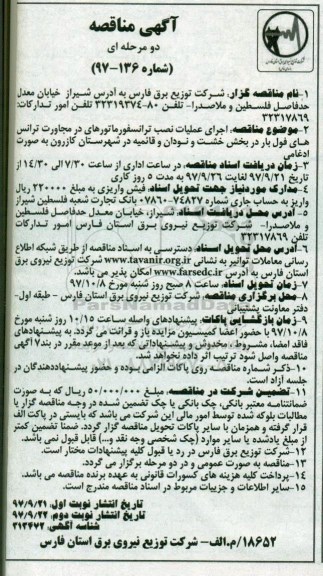 آگهی مناقصه
دو مرحله ای
(شماره ۱۳۶-۹۷)
۱-نام مناقصه گزار، شرکت توزیع برق فارس به آدرس شیراز خیابان معدل
حدفاصل فلسطین و ملاصدرا- تلفن ۸۰-۳۲۳۱۹۳۷۴ تلفن امور تدارکات:
۳۲۳۱۷۸۶۹
۲-موضوع مناقصه، اجرای عملیات نصب ترانسفورماتورهای در مجاورت ترانس
های فول بار در بخش خشت و نودان و قائمیه در شهرستان کازرون به صورت
ادغامی
۳-زمان دریافت اسناد مناقصه، در ساعات اداری از ساعت ۷/۳۰ الی ۱۴/۳۰ از
تاریخ ۹۷/۹/۲۱ لغایت ۹۷/۹/۲۶ به مدت ۵ روز کاری
۴-مدارک موردنیاز جهت تحویل اسناد، فیش واریزی به مبلغ ۲۲۰۰۰۰ ریال
واریز به حساب جاری شماره ۷۴۸۲۷-۰۷۸۶۰ بانک تجارت شعبه فلسطین شیراز
۵- آدرس محل دریافت اسناد، شیراز، خیابان معدل حدفاصل فلسطین
و ملاصدرا- شرکت توزیع نیروی برق استان فارس امور تدارکات
تلفن ۳۲۳۱۷۸۶۹
۶-آدرس محل تحویل اسناد، دسترسی به اسناد مناقصه از طریق شبکه اطلاع
رسانی معاملات توانیر به نشانی www.tavanir.org.ir شرکت توزیع نیروی برق
استان فارس به آدرس www.farsedc.ir امکان پذیر می باشد.
۷-زمان تحویل اسناد، ساعت ۸ صبح روز شنبه مورخ ۹۷/۱۰/۸
۸-محل برگزاری مناقصه شرکت توزیع نیروی برق استان فارس - طبقه اول-
دفتر معاونت پشتیبانی
۹-زمان بازگشایی پاکات، پیشنهادهای واصله ساعت ۱۰/۱۵ روز شنبه مورخ
۹۷/۱۰/۸ با حضور اعضا کمیسیون مزایده باز و قرائت می گردد. به پیشنهادهای
فاقد امضا، مشروط، مخدوش و پیشنهاداتی که بعد از موعد مقرر در بند۷ آگهی
مناقصه واصل شود ترتیب اثر داده نخواهد شد.
۱۰-ذکر شماره مناقصه روی پاکات الزامی بوده و حضور پیشنهاددهندگان در
جلسه آزاد است.
۱۱-تضمین شرکت در مناقصه، مبلغ ۵۰/۰۰۰/۰۰۰ ریال که به صورت
ضمانتنامه معتبر بانکی، چک بانکی یا چک تضمین شده در وجه مناقصه گزار یا
مطالبات بلوکه شده توسط امور مالی این شرکت می باشد که بایستی در پاکت الف
قرار گرفته و همزمان با سایر پاکات تحویل مناقصه گزار گردد. ضمنا تضمین کمتر
از مبلغ یادشده یا سایر موارد (چک شخصی وجه نقد و...) قابل قبول نمی باشد.
۱۲-شرکت توزیع برق فارس در رد یا قبول کلیه پیشنهادات مختار است.
۱۳-مناقصه به صورت عمومی و در دو مرحله برگزار می گردد.
۱۴-پرداخت کلیه هزینه های کسورات قانونی به عهده برنده مناقصه می باشد.
۱۵-سایر اطلاعات و جزییات مربوط در اسناد مناقصه مندرج است.
تاریخ انتشار نوبت اول، ۹۷/۹/۲۱
تاریخ انتشار نوبت دوم، ۹۷/۹/۲۲
شناسه آگهی، ۳۱۳۴۷۲
۱۸۶۵۲/م.الف- شرکت توزیع نیروی برق استان فارس